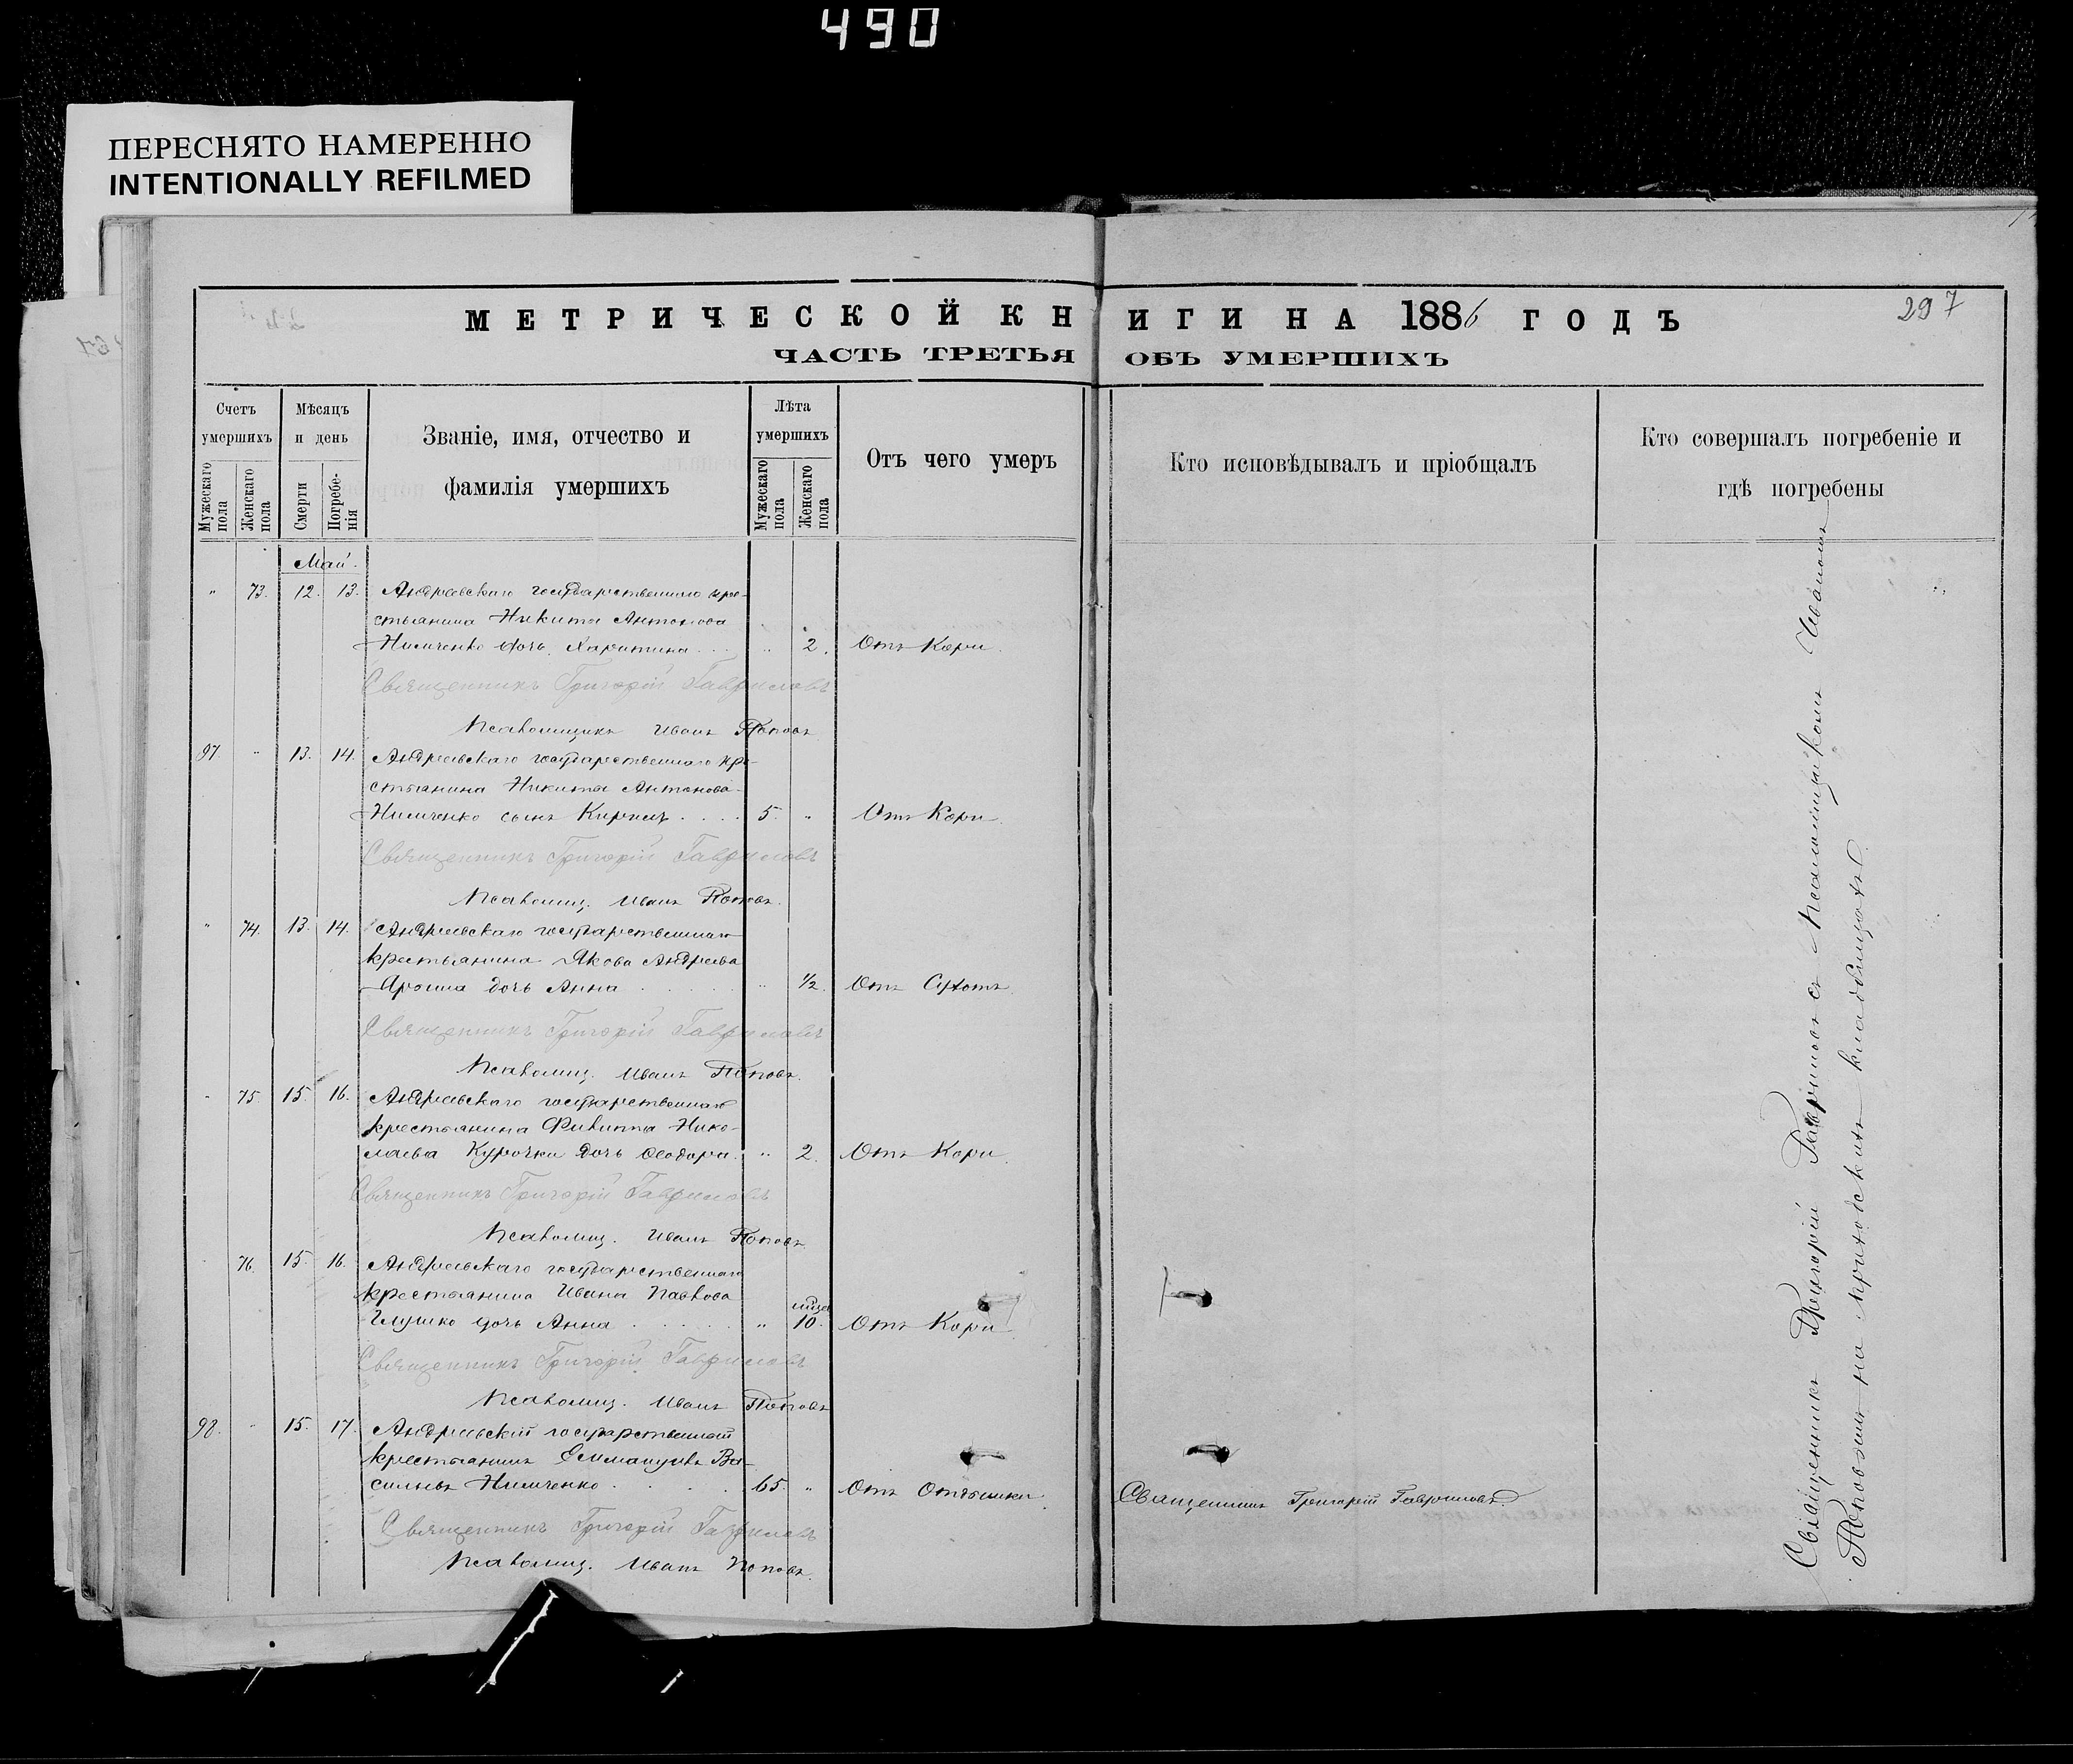 490
ПЕРЕСНЯТО НАМЕРЕННО
INTENTIONALLY REFILMED
МЕТРИЧЕСКОЙ КНИГИ НА 1886 ГОДЪ
297
ЧАСТЬ ТРЕТЬЯ ОБЪ УМЕРШИХЪ
Счетъ умершихъ
Мужескаго пола
Женскаго пола
Мѣсяцъ и день
Смерти
Погребенія
Званіе, имя, отчество и фамилія умершихъ
Лѣта умершихъ
Мужескаго пола
Женскаго пола
Отъ чего умеръ
Кто исповѣдывалъ и пріобщалъ
Кто совершалъ погребеніе и гдѣ погребены
Май.
" 73. 12. 13. Андреевскаго государственнаго кре-
стьянина Никиты Антонова
Нимченко дочь Харитина . . . " 2. Отъ Кори.
Священникъ Григорій Гавриловъ
Псаломщикъ Иванъ Поповъ
97. " 13. 14. Андреевскаго государственнаго кре-
стьянина Никиты Антонова
Нимченко сынъ Кирилъ . . . . 5. " Отъ Кори.
Священникъ Григорій Гавриловъ
Псаломщ. Иванъ Поповъ.
" 74. 13. 14. Андреевскаго государственнаго
крестьянина Якова Андреева
Яроша дочь Анна . . . . . " 1/2. Отъ Сухотъ.
Священникъ Григорій Гавриловъ
Псаломщ. Иванъ Поповъ.
" 75. 15. 16. Андреевскаго государственнаго
крестьянина Филиппа Нико-
лаева Курочки дочь Феодора. " 2. Отъ Кори.
Священникъ Григорій Гавриловъ
Псаломщ. Иванъ Поповъ
" 76. 15. 16. Андреевскаго государственнаго
крестьянина Ивана Павлова
Глушко дочь Анна . . . . . " 10. Отъ Кори.
Священникъ Григорій Гавриловъ
Псаломщ. Иванъ Поповъ
98. " 15. 17. Андреевскій государственный
крестьянинъ Еммануилъ Ва-
сильевъ Нимченко . . . . . 65. " Отъ Отдышки. Священникъ Григорій Гавриловъ.
Священникъ Григорій Гавриловъ
Псаломщ. Иванъ Поповъ.
Священникъ Григорій Гавриловъ съ Псаломщикомъ Иваномъ
Поповымъ на приходскомъ кладбищѣ.